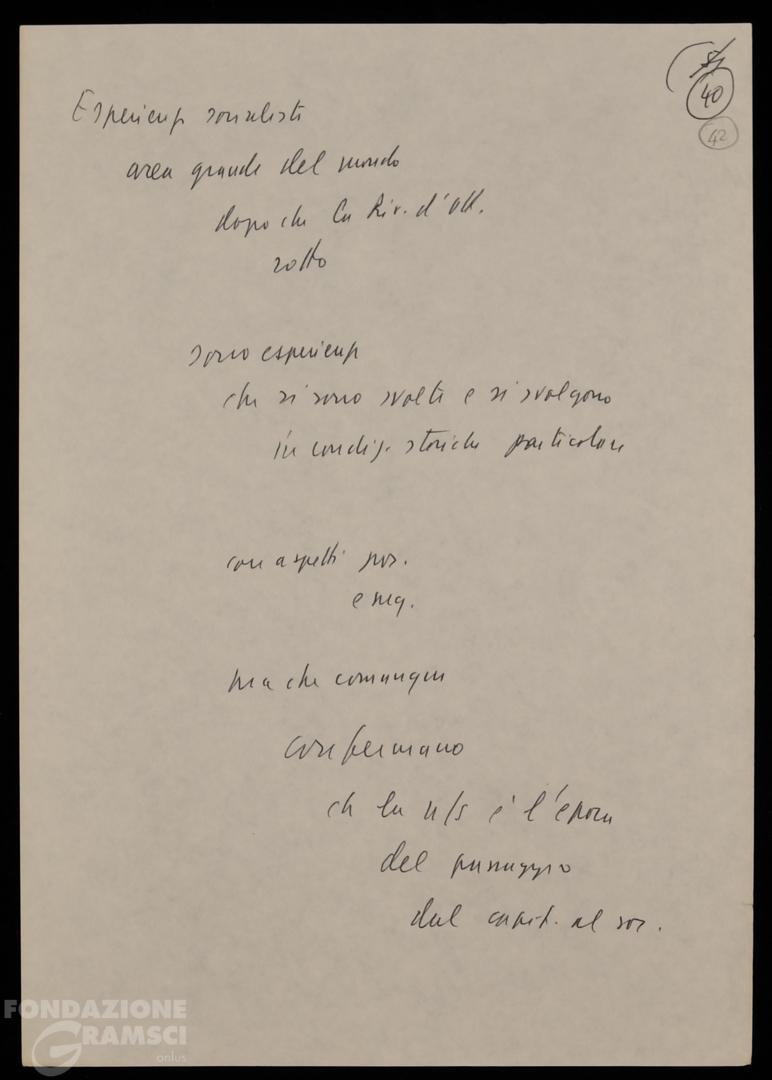 40
42
Esperienze socialiste
area grande del mondo
dopo che la Riv. d'Ott.
rotto
sono esperienze
che si sono svolte e si svolgono
in condiz. storiche particolari
con aspetti pos.
e neg.
ma che comunque
confermano
che la n/s è l'epoca
del passaggio
dal capit. al soc.
FONDAZIONE
GRAMSCI
onlus